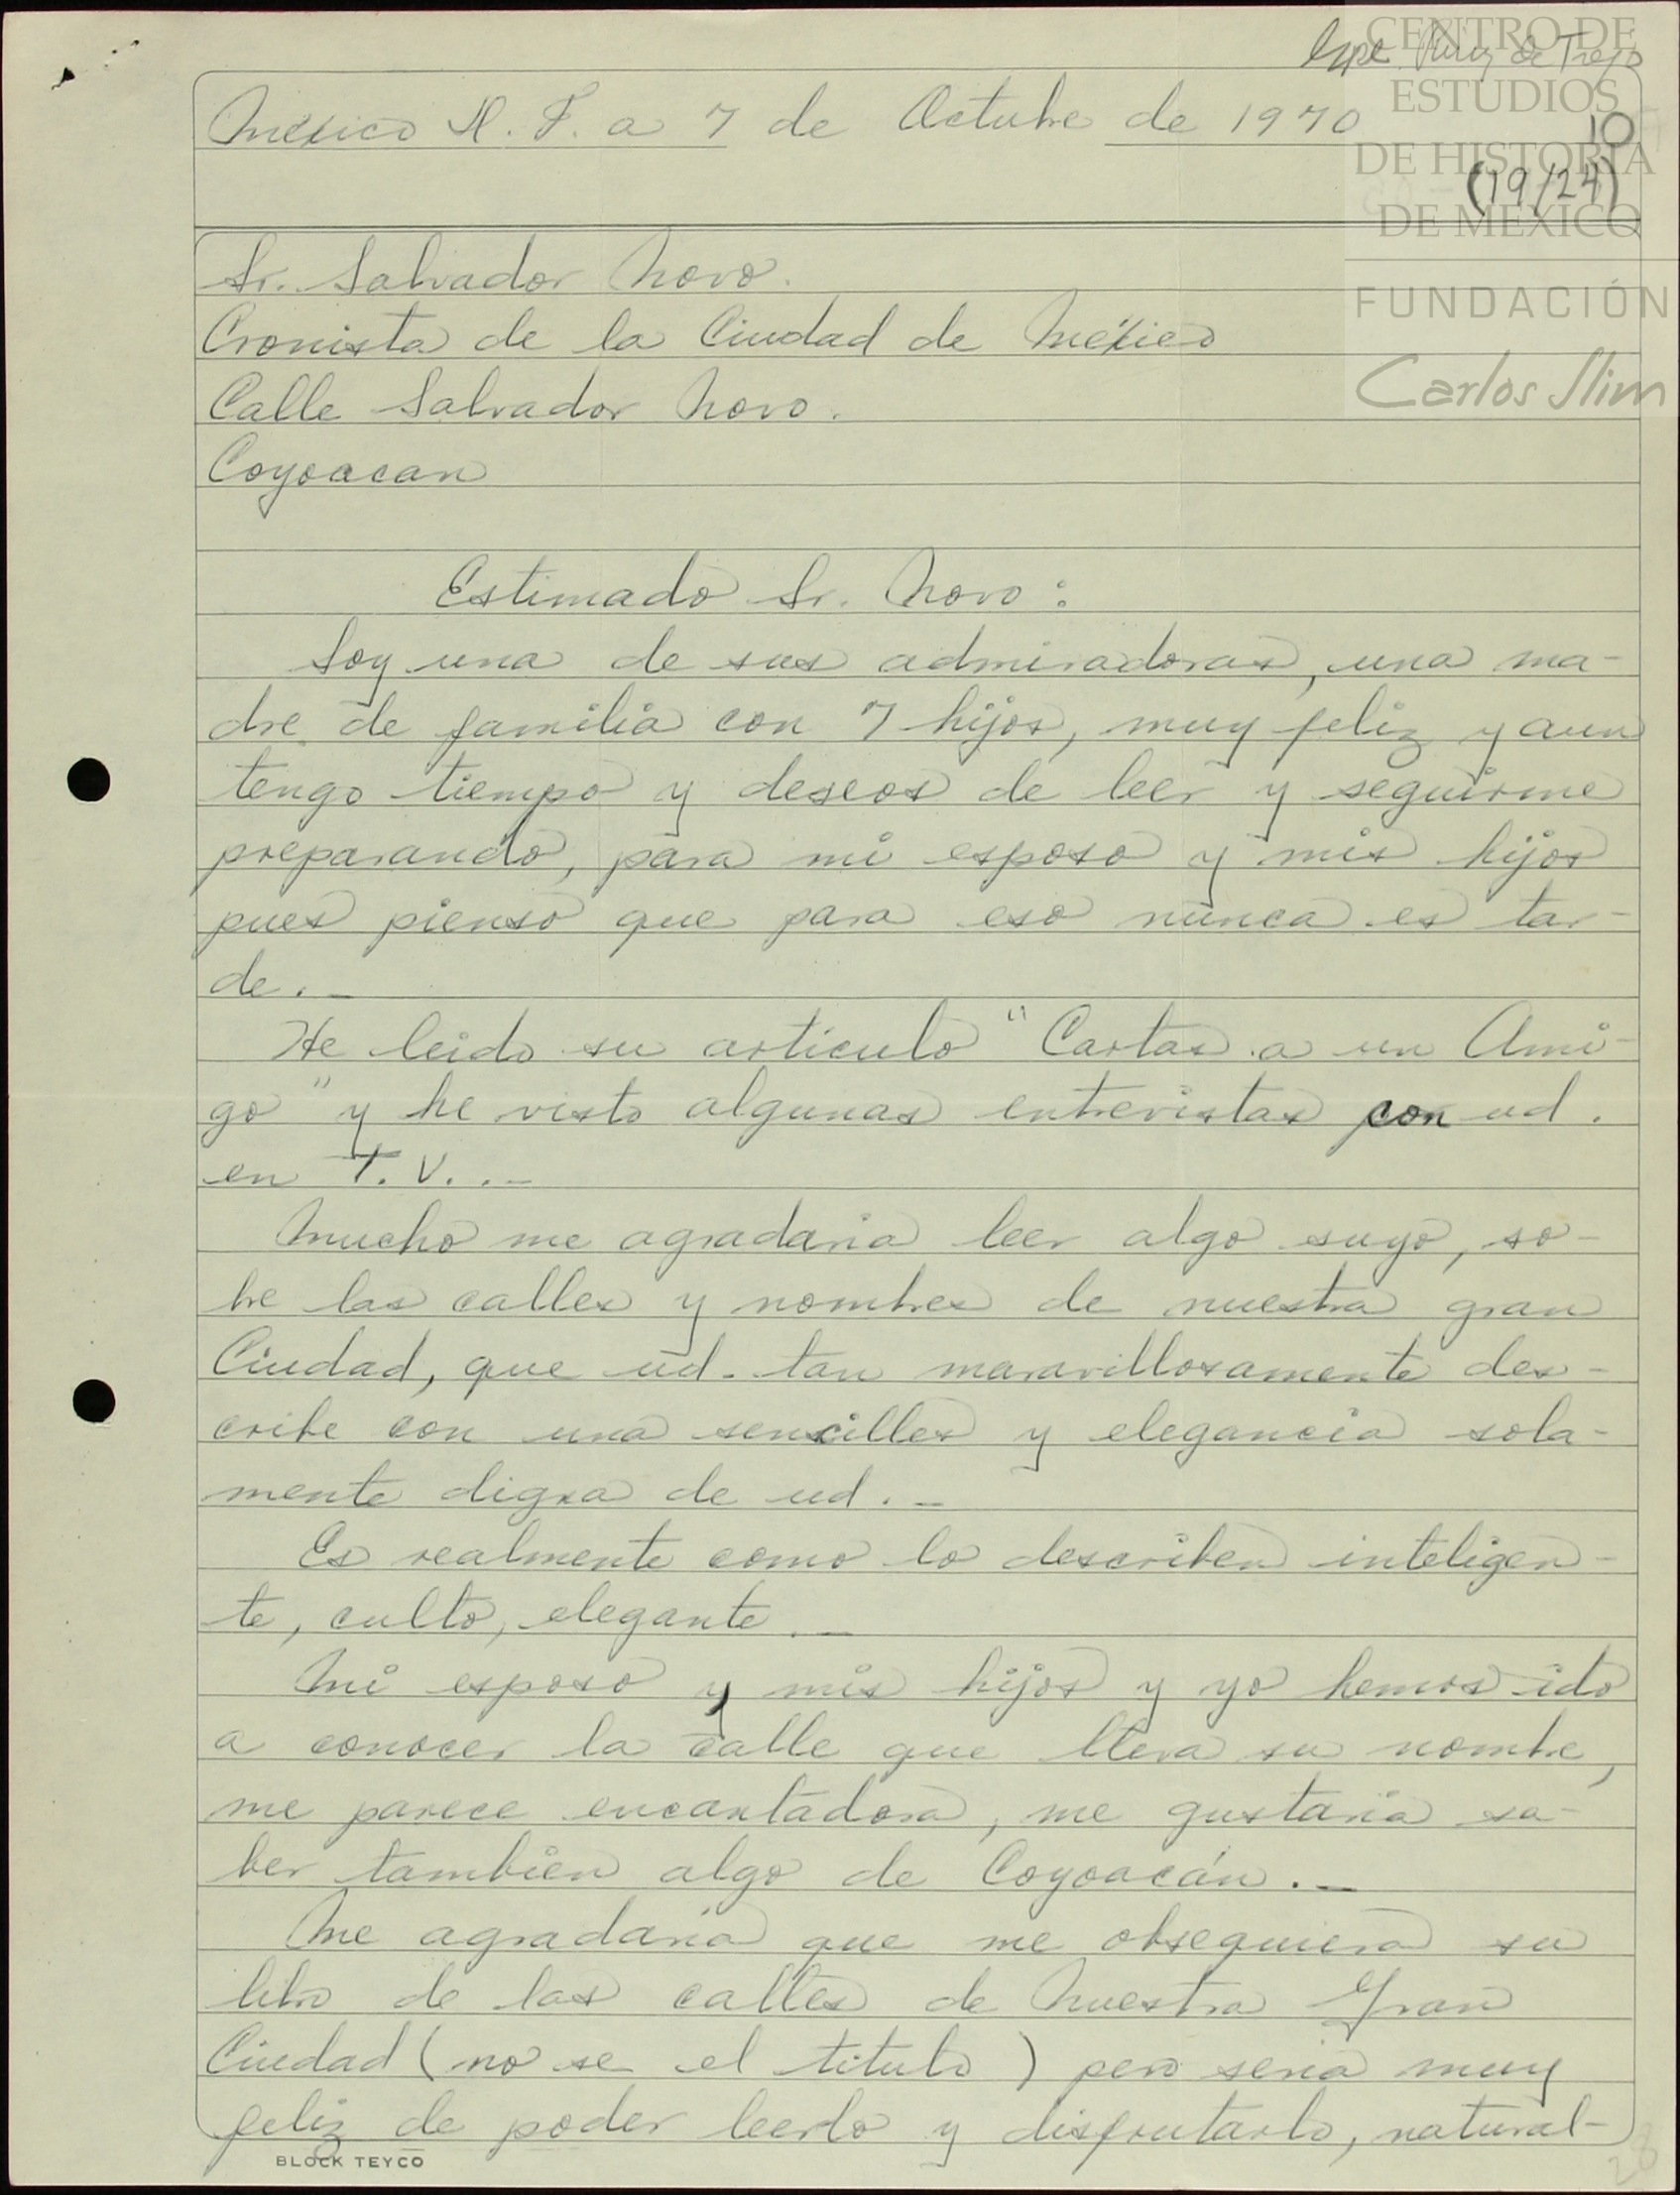 Ruiz de Trejo
CENTRO DE
ESTUDIOS
DE HISTORIA
DE MÉXICO
FUNDACIÓN
Carlos Slim
10
(19/24)
México D. F. a 7 de Octubre de 1970
Sr. Salvador Novo.
Cronista de la Ciudad de México
Calle Salvador Novo.
Coyoacan
Estimado Sr. Novo:
Soy una de sus admiradoras, una ma-
dre de familia con 7 hijos, muy feliz y aun
tengo tiempo y deseos de leer y seguirme
preparando, para mi esposo y mis hijos
pues pienso que para eso nunca es tar-
de.-
He leido su articulo "Cartas a un Ami-
go" y he visto algunas entrevistas con ud.
en T.V..-
Mucho me agradaria leer algo suyo, so-
bre las calles y nombres de nuestra gran
Ciudad, que ud. tan maravillosamente des-
cribe con una sencilles y elegancia sola-
mente digna de ud.-
Es realmente como lo describen inteligen-
te, culto, elegante.-
Mi esposo y mis hijos y yo hemos ido
a conocer la calle que lleva su nombre,
me parece encantadora, me gustaria sa-
ber tambien algo de Coyoacán.-
Me agradaria que me obsequiera su
libro de las calles de Nuestra Gran
Ciudad (no se el titulo) pero seria muy
feliz de poder leerlo y disfrutarlo, natural-
BLOCK TEYCO
28